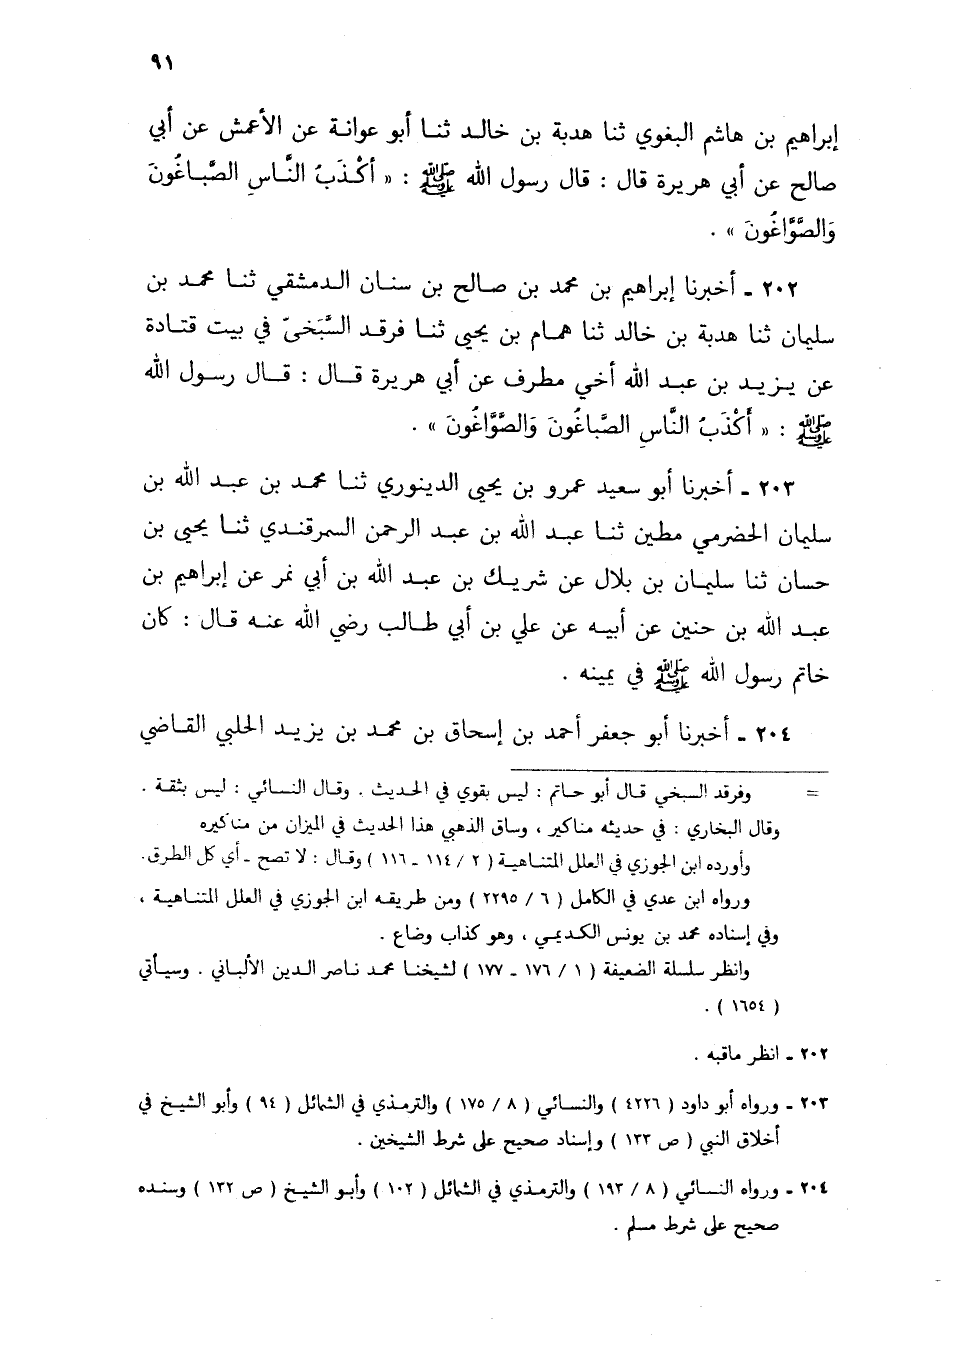 ٩١
إبراهيم بن هاشم البغوي ثنا هدبة بن خالد ثنا أبو عوانة عن الأعمش عن أبي
صالح عن أبي هريرة قال : قال رسول الله ﷺ : « أَكْذَبُ النَّاسِ الصَّبَاغُونَ
وَالصَّوَّاغُونَ » .
٢٠٢ ـ أخبرنا إبراهيم بن محمد بن صالح بن سنان الدمشقي ثنا محمد بن
سليمان ثنا هدبة بن خالد ثنا همام بن يحيى ثنا فرقد السَّبَخيّ في بيت قتادة
عن يزيد بن عبد الله أخي مطرف عن أبي هريرة قال : قال رسول الله
ﷺ : « أَكْذَبُ النَّاسِ الصَّبَاغُونَ وَالصَّوَّاغُونَ » .
٢٠٣ ـ أخبرنا أبو سعيد عمرو بن يحيى الدينوري ثنا محمد بن عبد الله بن
سليمان الحضرمي مطين ثنا عبد الله بن عبد الرحمن السمرقندي ثنا يحيى بن
حسان ثنا سليمان بن بلال عن شريك بن عبد الله بن أبي نمر عن إبراهيم بن
عبد الله بن حنين عن أبيه عن علي بن أبي طالب رضي الله عنه قال : كان
خاتم رسول الله ﷺ في يمينه .
٢٠٤ ـ أخبرنا أبو جعفر أحمد بن إسحاق بن محمد بن يزيد الحلبي القاضي
= وفرقد السبخي قال أبو حاتم : ليس بقوي في الحديث . وقال النسائي : ليس بثقة .
وقال البخاري : في حديثه مناكير ، وساق الذهبي هذا الحديث في الميزان من مناكيره
وأورده ابن الجوزي في العلل المتناهية ( ٢ / ١١٤ ـ ١١٦ ) وقال : لا تصح ـ أي كل الطرق.
ورواه ابن عدي في الكامل ( ٦ / ٢٢٩٥ ) ومن طريقه ابن الجوزي في العلل المتناهية ،
وفي إسناده محمد بن يونس الكديمي ، وهو كذاب وضاع .
وانظر سلسلة الضعيفة ( ١ / ١٧٦ ـ ١٧٧ ) لشيخنا محمد ناصر الدين الألباني . وسيأتي
( ١٦٥٤ ) .
٢٠٢ ـ انظر ماقبه .
٢٠٣ ـ ورواه أبو داود ( ٤٢٢٦ ) والنسائي ( ٨ / ١٧٥ ) والترمذي في الشمائل ( ٩٤ ) وأبو الشيخ في
أخلاق النبي ( ص ١٣٣ ) وإسناد صحيح على شرط الشيخين .
٢٠٤ ـ ورواه النسائي ( ٨ / ١٩٣ ) والترمذي في الشمائل ( ١٠٢ ) وأبو الشيخ ( ص ١٣٢ ) وسنده
صحيح على شرط مسلم .